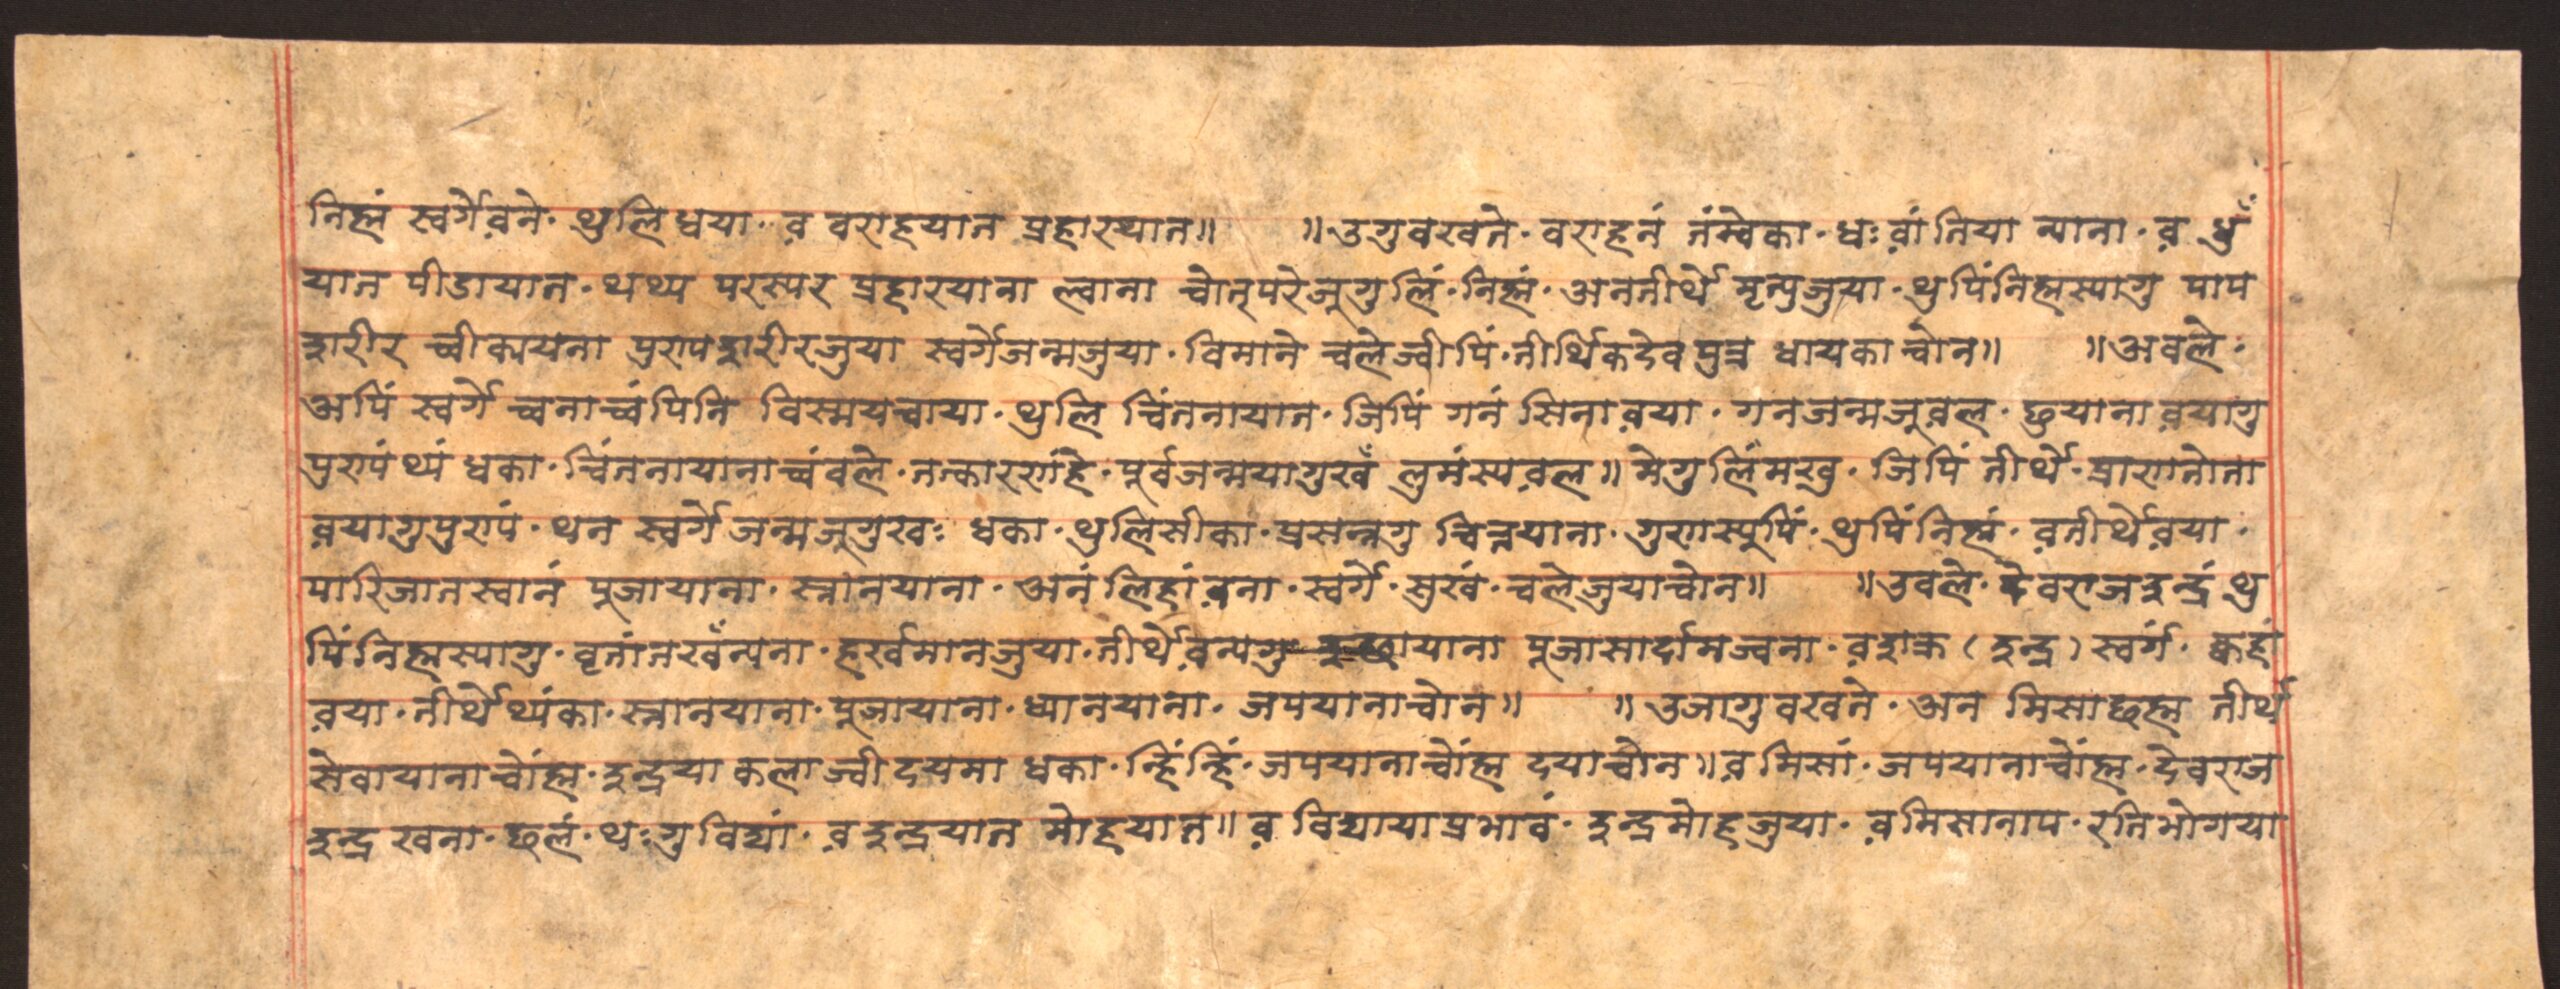 निह्मं स्वर्गेव़ने· थुलि ध्वया· व़ वराहयात प्रहारयात॥ ॥उगुवखते· वराहनं तंम्वेका· धः व़ांतिया न्याना· व़ धुँ
यात पीडायात· थथ्य परस्पर प्रहारयाना ल्वाना चोतृपरेजूगुलिं· निह्मं· अनतीर्थे मृत्युजुया· थुपिंनिह्मस्यागु पाप
शरीर च्वीकायना पुराप शरीरजुया स्वर्गेजन्मजुया· विमाने चलेज्वीपिं· तीर्थिकदेव पुत्र धायका चोन॥ ॥अवले·
अपिं स्वर्गे च्वनाच्वंपिनि विस्मयचाया· थुलि चिंतनायात· जिपिं गनं सिनाव़या· गनजन्मजूव़ल· छुयानाव़यागु
पुरापं थ्यं धका· चिंतनायानाच्वंवले· तत्काररांहे· पूर्वजन्मयागुखँ लुमंस्यव़ल॥ मेगुलिंमखु· जिपिं तीर्थे· प्रारातोता
व़यागुपुरापं· थन स्वर्गे जन्मजूगुखः धका· थुलिसीका· प्रसन्नगु चित्तयाना· गुरास्पुपिं· थुपिंनिह्मं· व़तीर्थेव़या·
पारिजातस्वानं पूजायाना· स्नानयाना· अनं लिहांव़ना· स्वर्गे· सुखं· चलेजुयाचोन॥ ॥उवले· देवराजइन्द्रं थु
पिंनिह्मस्यागु· वृतांतखँन्यना· हर्खमानजुया· तीर्थेव़न्यगु इच्छायाना पूजासार्दामज्वना· व़शक्र (इन्द्र) स्वर्गं· क्वहां
व़या· तीर्थे थ्यंका· स्नानयाना· पूजायाना· ध्यानयाना· जपयानाचोन॥ ॥उजागु वखते· अन मिसाछह्म तीर्थ
सेवायाना चोंह्म· इन्द्रया कलाज्वी दयमा धका· न्हिंन्हिं· जपयानाचोंह्म दयाचोन॥ व़ मिसां· जपयानाचोंह्म· देवराज
इन्द्र खना· छलं· थःगु विद्यां· व़इन्द्रयात मोहयात॥ व़ विद्यायाप्रभावं· इन्द्रमोहजुया· व़मिसानाप· रतिभोगया